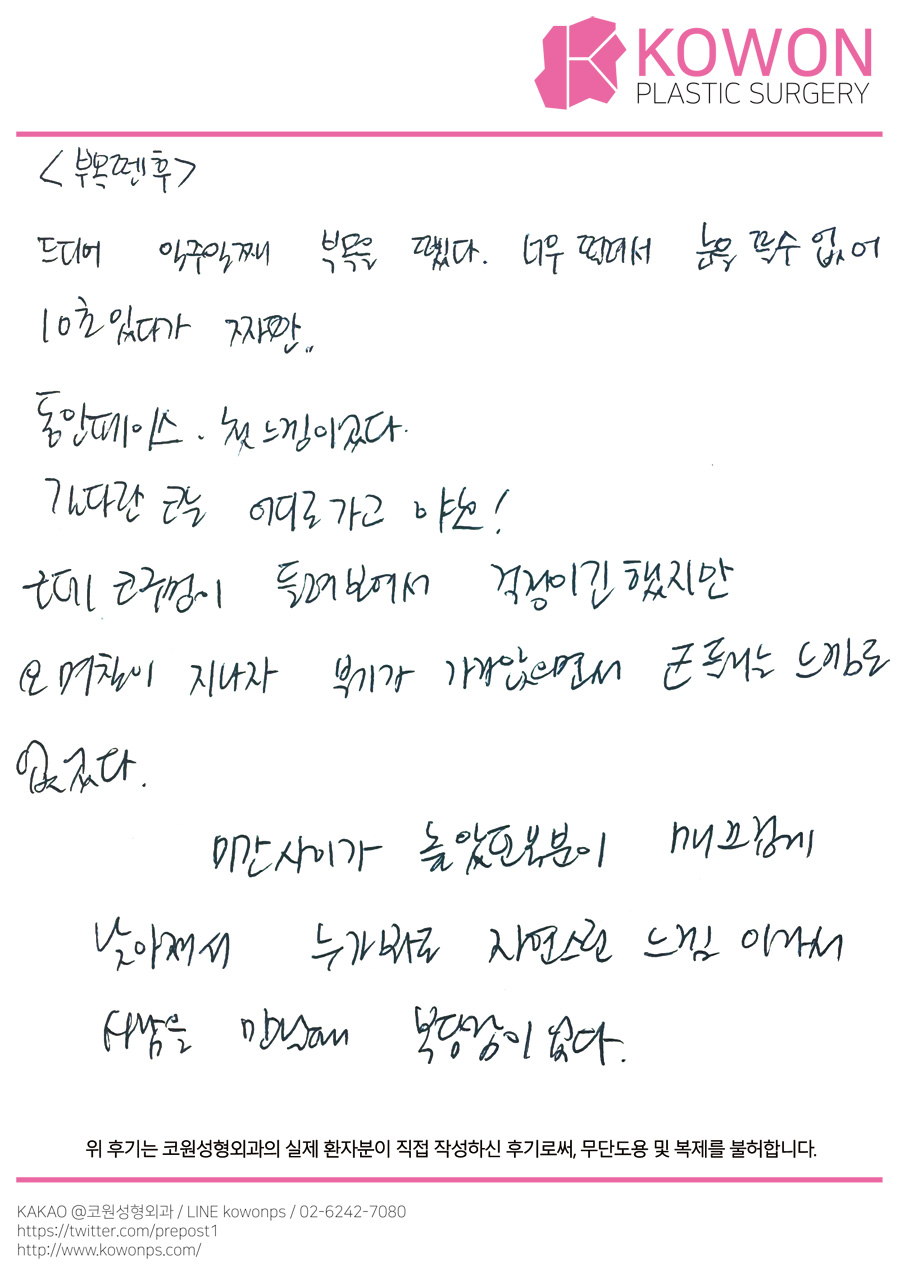 KOWON
PLASTIC SURGERY
<부목뗀후>
드디어 일주일째 부목을 뗐다. 너무 떨려서 눈을 뜰수 없어
10초있다가 짜짠..
동안페이스. 첫느낌이였다.
길다란 코는 어디로가고 야호!
근데 콧구멍이 들려보여서 걱정이긴했지만
오 며칠이 지나자 붓기가 가라앉으면서 큰 들리는 느낌도
없었다.
미간사이가 높았던부분이 매끄럽게
낮아져서 누가봐도 자연스런 느낌 이라서
사람을 만날때 부담감이 없다.
위 후기는 코원성형외과의 실제 환자분이 직접 작성하신 후기로써, 무단도용 및 복제를 불허합니다.
KAKAO @코원성형외과 / LINE kowonps / 02-6242-7080
https://twitter.com/prepost1
http://www.kowonps.com/